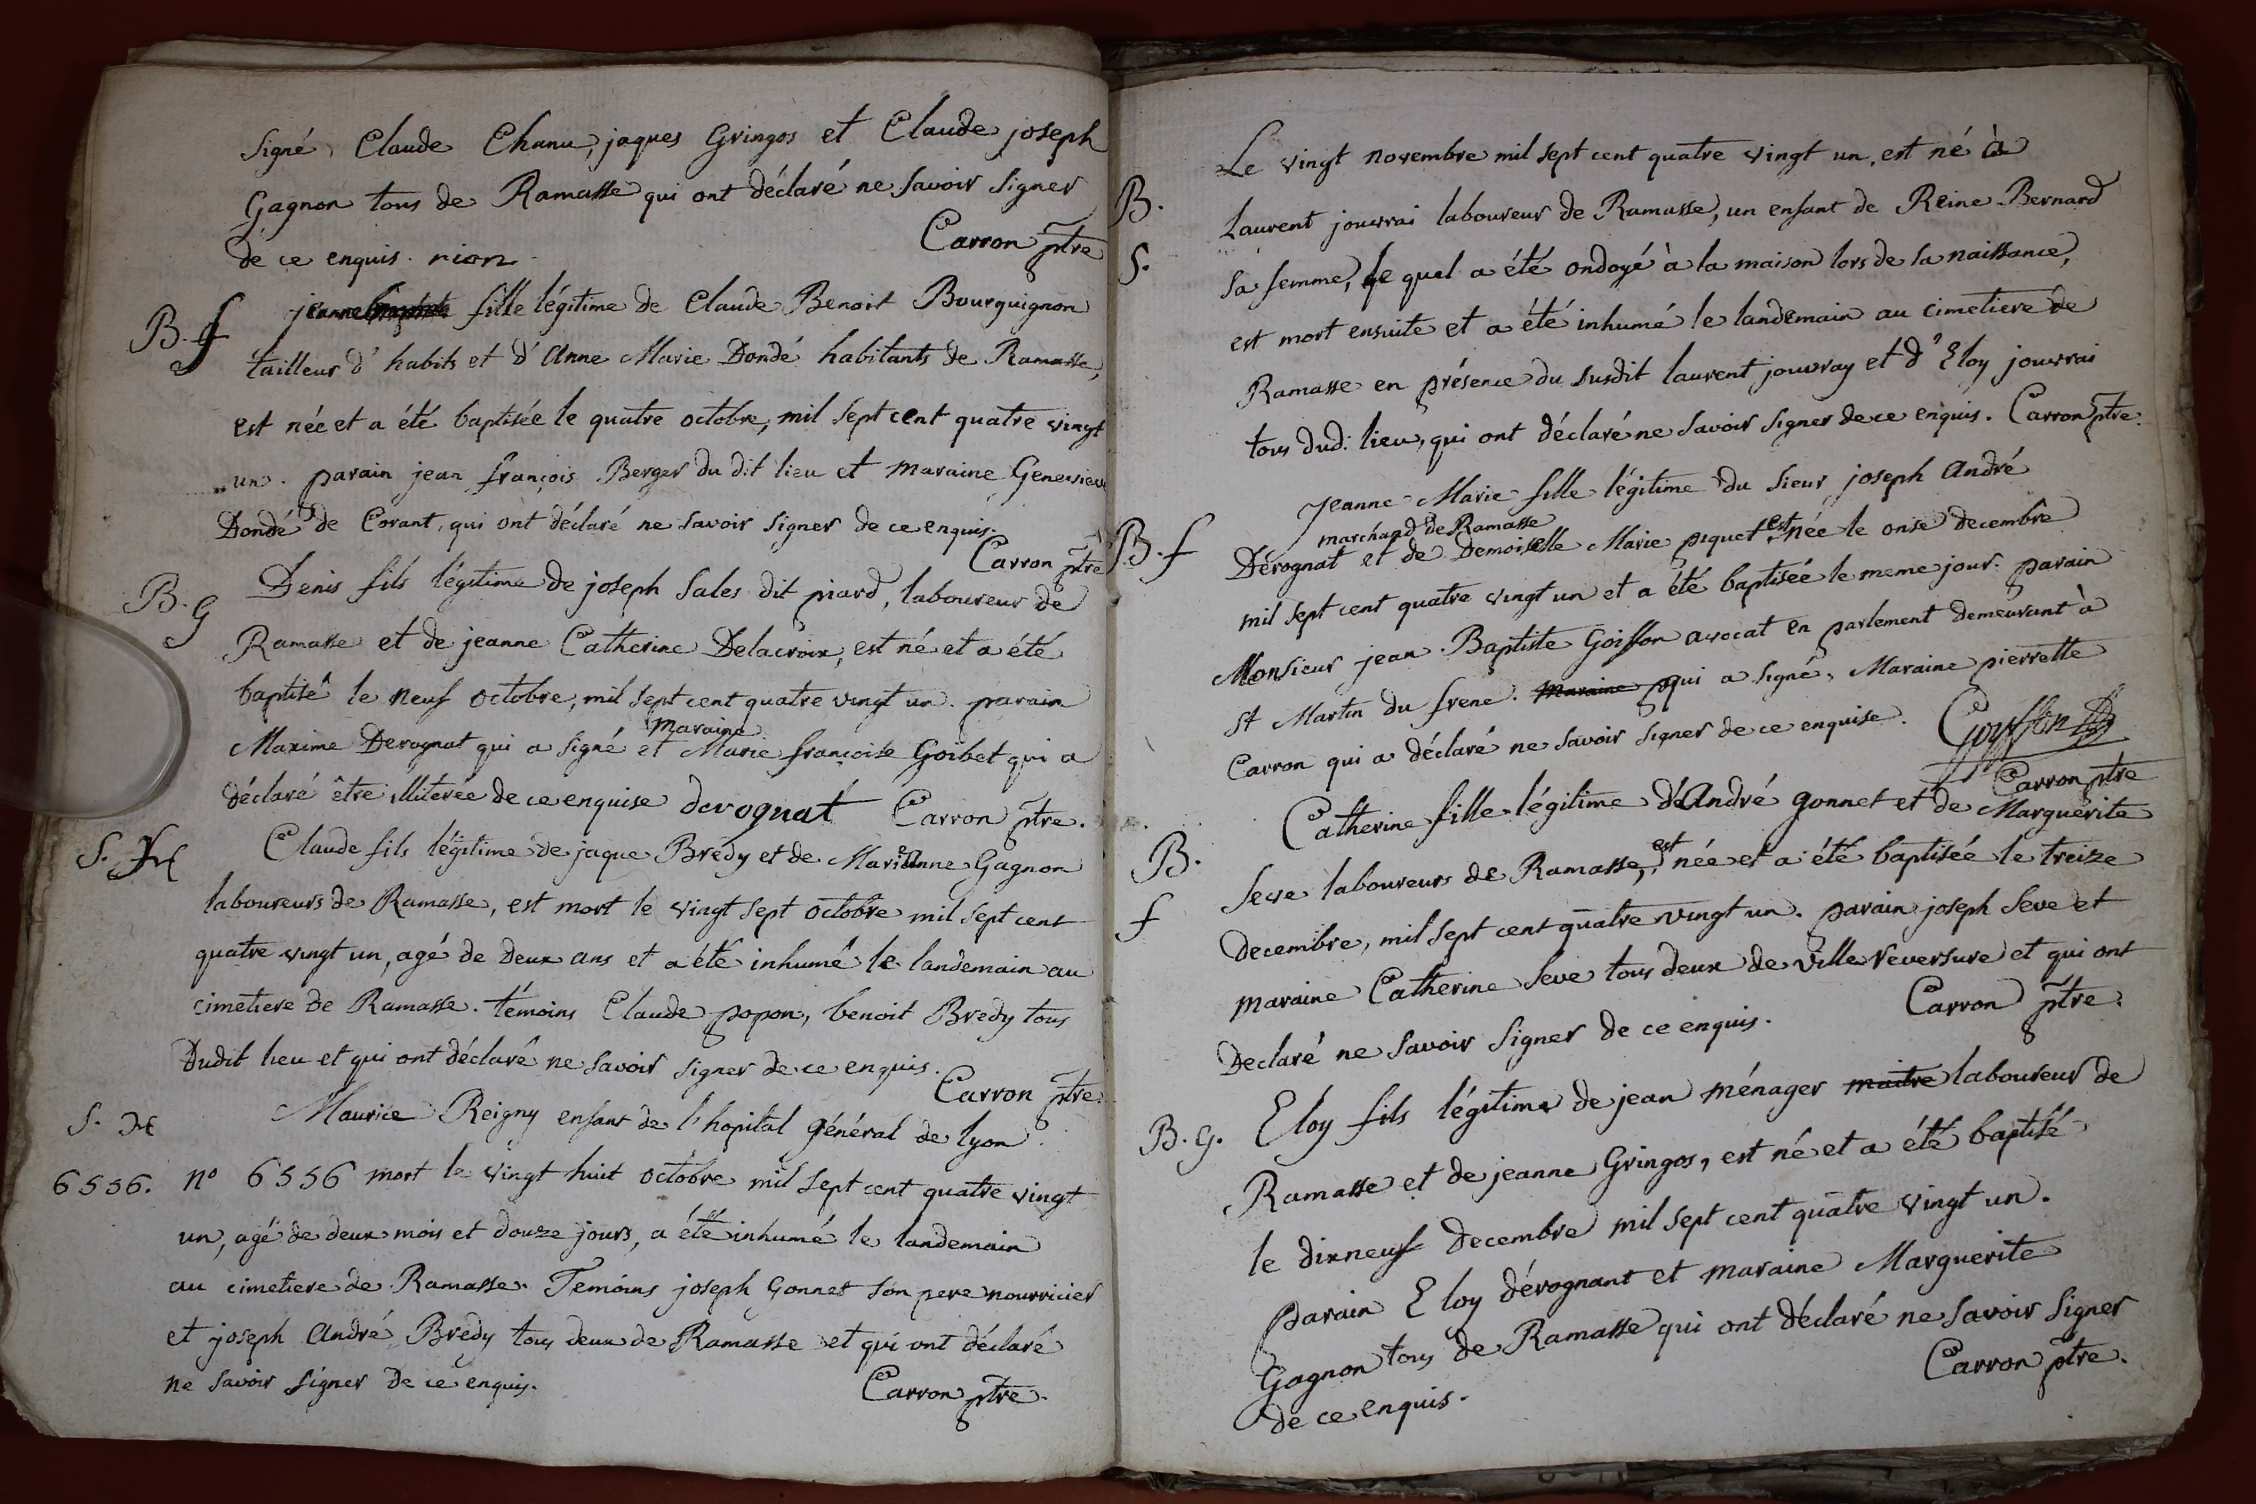 signé, Claude Chanu, jaques Gringos et Claude joseph
Gagnon tous de Ramasse qui ont déclaré ne savoir signer
de ce enquis. rion.
Carron ptre
B. f
jeanne fille légitime de Claude Benoit Bourguignon
tailleur d'habits et d'Anne Marie Dondé habitants de Ramasse,
est née et a été baptisée le quatre octobre, mil sept cent quatre vingt
un. parain jean françois Berger du dit lieu et maraine Genevieve
Dondé de Corant, qui ont déclaré ne savoir signer de ce enquis.
Carron ptre
B. G
Denis fils légitime de joseph Sales dit piard, laboureur de
Ramasse et de jeanne Catherine Delacroix, est né et a été
baptisé le neuf octobre, mil sept cent quatre vingt un. parain
maraine
Maxime Derognat qui a signé et Marie françoise Goibet qui a
déclaré être illiterée de ce enquise derognat Carron ptre.
S.
Claude fils légitime de jaque Brédy et de Marie Anne Gagnon
laboureurs de Ramasse, est mort le vingt sept octobre mil sept cent
quatre vingt un, agé de deux ans et a été inhumé le landemain au
cimetiere de Ramasse. témoins Claude popon, benoit Bredy tous
Dudit lieu et qui ont déclaré ne savoir signer de ce enquis.
Carron ptre.
S.
Maurice Reigny enfant de l'hopital général de lyon
6556. n° 6556 mort le vingt huit octobre mil sept cent quatre vingt
un, agé de deux mois et douze jours, a été inhumé le landemain
au cimetiere de Ramasse. Temoins joseph Gonnet son pere nourricier
et joseph André Bredy tous deux de Ramasse et qui ont déclaré
ne savoir signer de ce enquis.
Carron ptre.
Le vingt novembre mil sept cent quatre vingt un, est né à
B.
Laurent jouvrai laboureur de Ramasse, un enfant de Reine Bernard
S.
sa femme, le quel a été ondoyé à la maison lors de sa naissance,
est mort ensuite et a été inhumé le landemain au cimetiere de
Ramasse en présence du susdit laurent jouvray et d'Eloy jouvrai
tous dud. lieu, qui ont déclaré ne savoir signer de ce enquis. Carron ptre.
Jeanne Marie fille légitime du sieur joseph André
marchand de Ramasse
B. f
Dérognat et de Demoiselle Marie piquet est née le onse decembre
mil sept cent quatre vingt un et a été baptisée le meme jour. parain
Monsieur jean Baptiste Goiffon avocat en parlement demeurant à
st Martin du frene. maraine qui a signé, Maraine pierrette
Carron qui a déclaré ne savoir signer de ce enquise.
Goyffon
Carron ptre
Catherine fille légitime d'André Gonnet et de Marguerite
B.
Seve laboureurs de Ramasse, est née et a été baptisée le treize
f
decembre, mil sept cent quatre vingt un. parain joseph Seve et
maraine Catherine Seve tous deux de ville reversure et qui ont
Declaré ne savoir signer de ce enquis.
Carron ptre.
B. G.
Eloy fils légitime de jean ménager maitre laboureur de
Ramasse et de jeanne Gringos, est né et a été baptisé
le dixneuf Decembre mil sept cent quatre vingt un.
parain Eloy dérognant et maraine Marguerite
Gagnon tous de Ramasse qui ont déclaré ne savoir signer
de ce enquis.
Carron ptre.